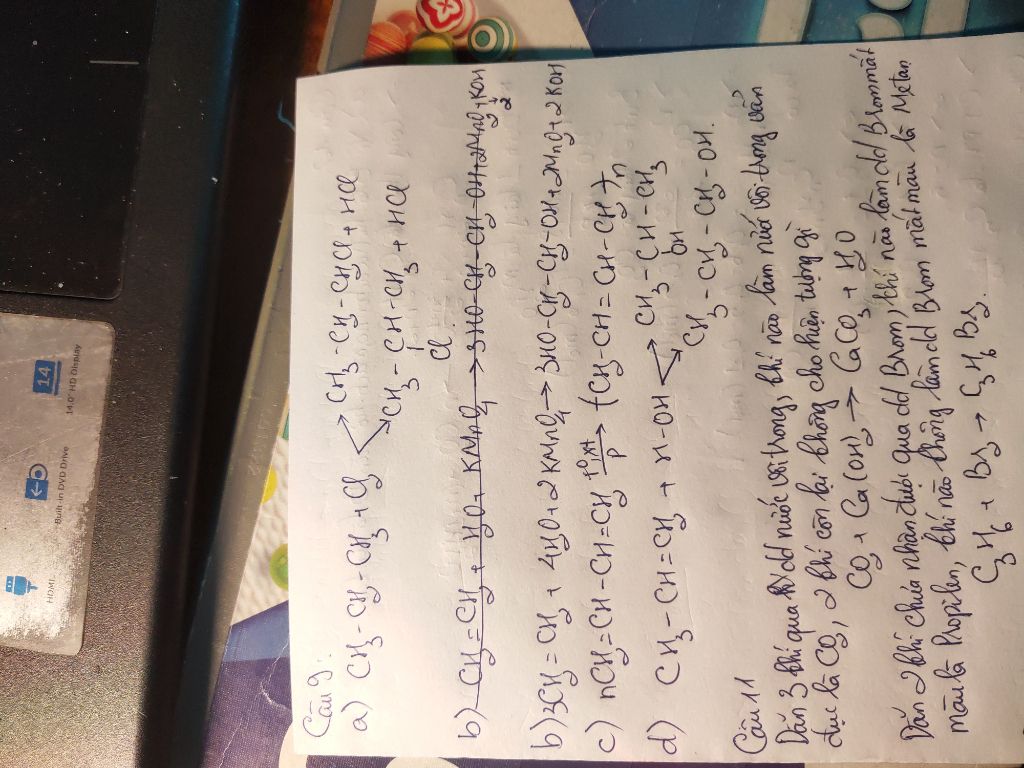 Câu 9:
a) CH3-CH2-CH3 + Cl2 → CH3-CH2-CH2Cl + HCl
→ CH3-CH-CH3 + HCl
Cl
b) CH2=CH2 + H2O + KMnO4 → 3HO-CH2-CH2-OH+2MnO2+KOH
b) 3CH2=CH2 + 4H2O + 2KMnO4 → 3HO-CH2-CH2-OH+2MnO2+2KOH
c) nCH2=CH-CH=CH2 →(t°,xt P) (CH2-CH=CH-CH2)n
d) CH3-CH=CH2 + H-OH → CH3-CH-CH3
OH
CH3-CH2-CH2-OH.
Câu 11
Dẫn 3 khí qua dd nước vôi trong, khí nào làm nước vôi trong vẩn
đục là CO2, 2 khí còn lại không cho hiện tượng gì
CO2 + Ca(OH)2 → CaCO3 + H2O
Dẫn 2 khí chưa nhận được qua dd Brom, khí nào làm dd Brom mất
màu là Propilen, khí nào không làm dd Brom mất màu là Mêtan
C3H6 + Br2 → C3H6Br2.
HDMI
Built-in DVD Drive
14
14.0" HD Display